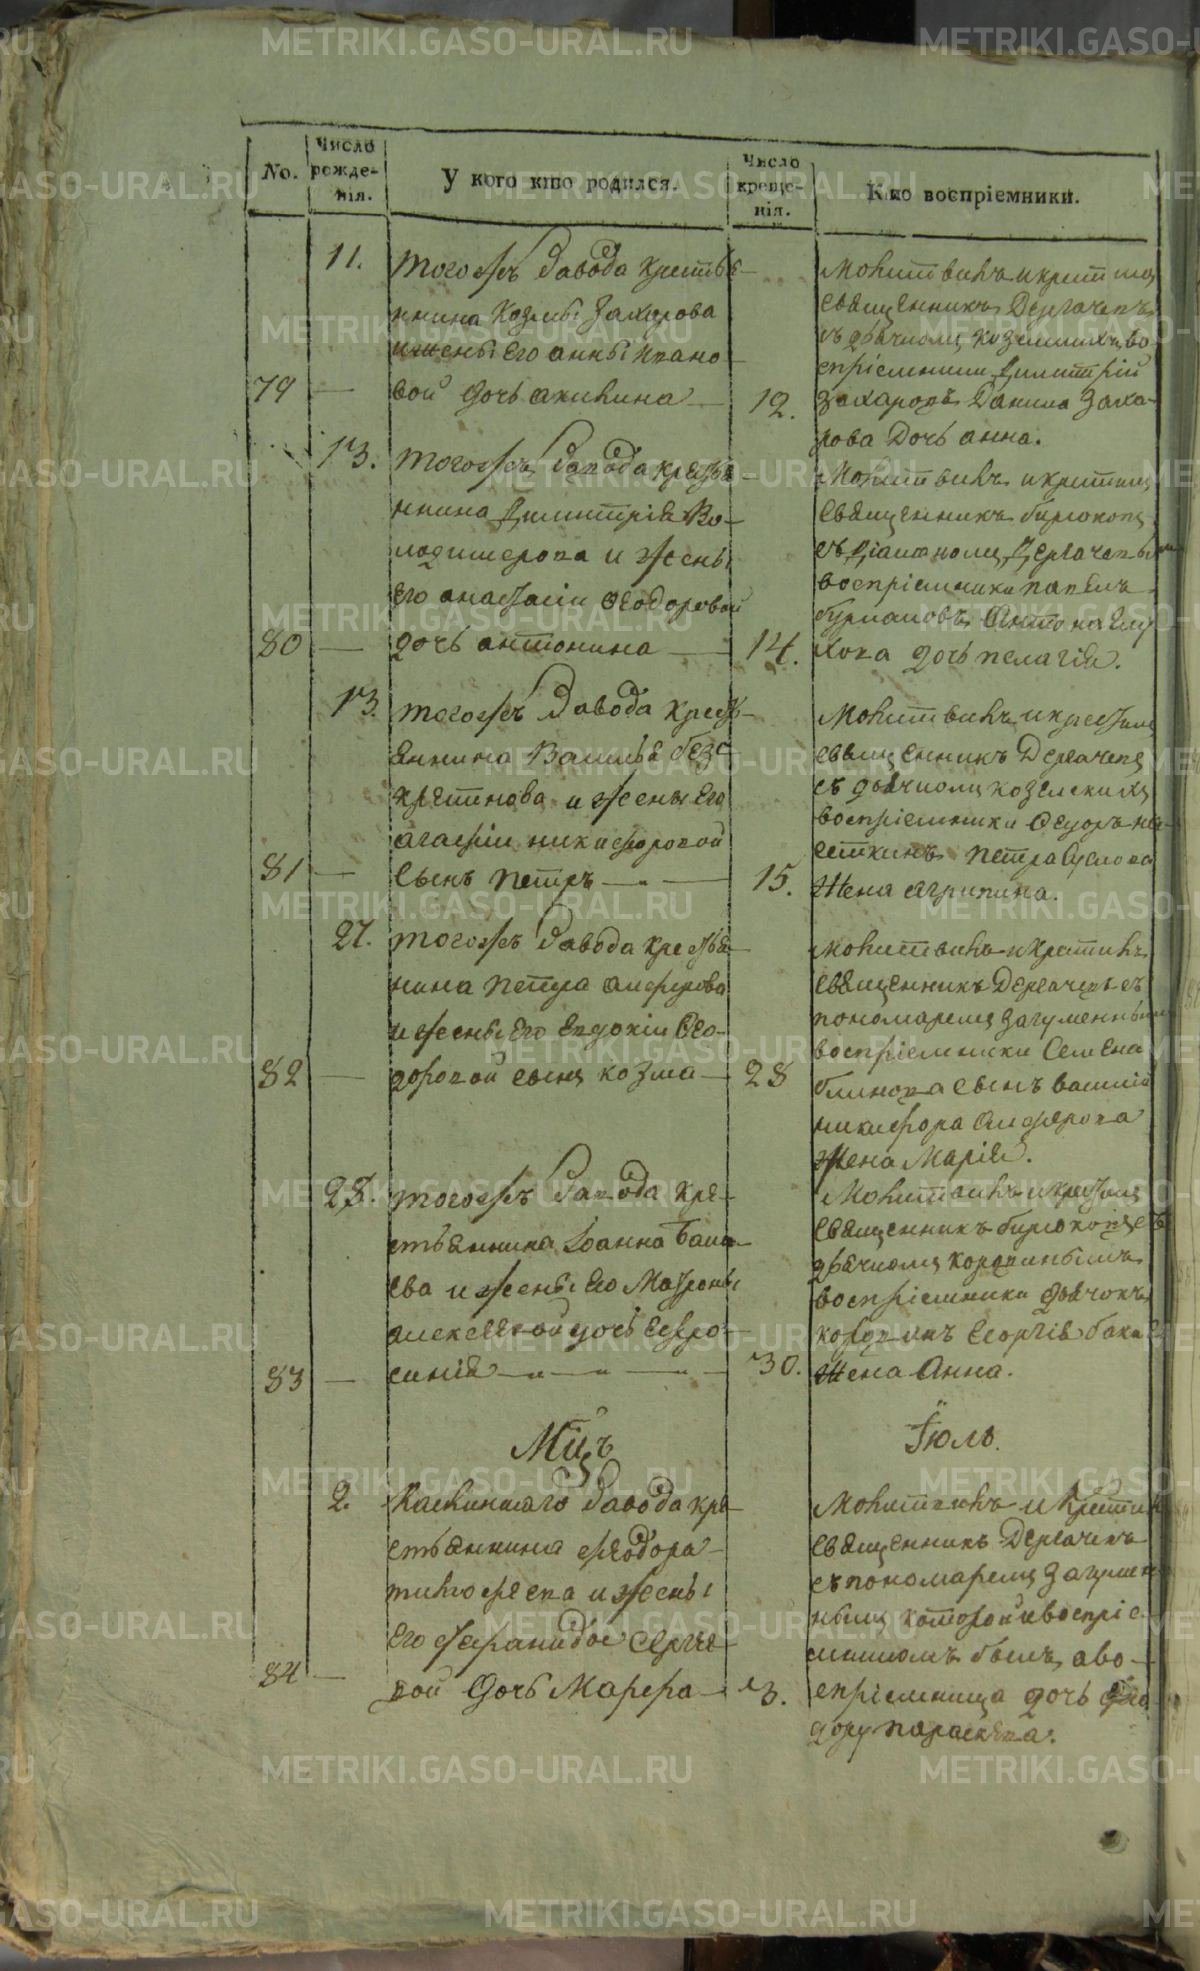 METRIKI.GASO-URAL.RU
No.
Число рожденія.
У кого кто родился.
Число крещенія.
Кто воспріемники.
11.
тогожъ завода крестья
нина Козмы Захарова
и жены его анны ивано
79
вой дочь акилина
12.
Молитвилъ и крестилъ
священникъ Дергачевъ
съ дьячкомъ
воспріемники димитрій
Захаровъ Данила Заха-
рова дочь анна.
13.
тогожъ завода крестья
нина димитрія Во-
лодимерова и жены
его анастасіи Феодоровой
80
дочь антонина
14.
Молитвилъ и крестилъ
священникъ бирюковъ
съ діакономъ Дергачевымъ
воспріемники павелъ
Антона
дочь пелагія.
13.
тогожъ завода крест-
янина Василья безс
и жены его
агафіи никифоровой
81
сынъ петръ
15.
Молитвилъ и крестилъ
священникъ Дергачевъ
съ дьячкомъ
воспріемники Феодоръ
петра Суслова
жена агрипина.
27.
тогожъ завода крестья-
нина петра алферова
и жены его евдокіи Фео-
82
доровой сынъ козма
28
Молитвилъ и крестилъ
священникъ Дергачевъ съ
пономаремъ Загуменнымъ
воспріемники Семена
блинова сынъ василій
никифора алферова
жена Марія.
28.
тогожъ завода кре-
стьянина Іоанна Бака-
ева и жены его Матроны
алексѣевой дочь Евфро-
83
синія
30.
Молитвилъ и крестилъ
священникъ бирюковъ съ
дьячкомъ коровинымъ
воспріемники дьячокъ
коровинъ Георгія бакае
жена Анна.
Мцъ
Іюль.
2.
Каслинскаго завода кре
стьянина феодора
и жены
его
84
вой дочь Марфа
3.
Молитвилъ и крестилъ
священникъ Дергачевъ
съ пономаремъ Загумен
нымъ которой и воспріе
мникомъ былъ, а во-
спріемница дочь
параскева.